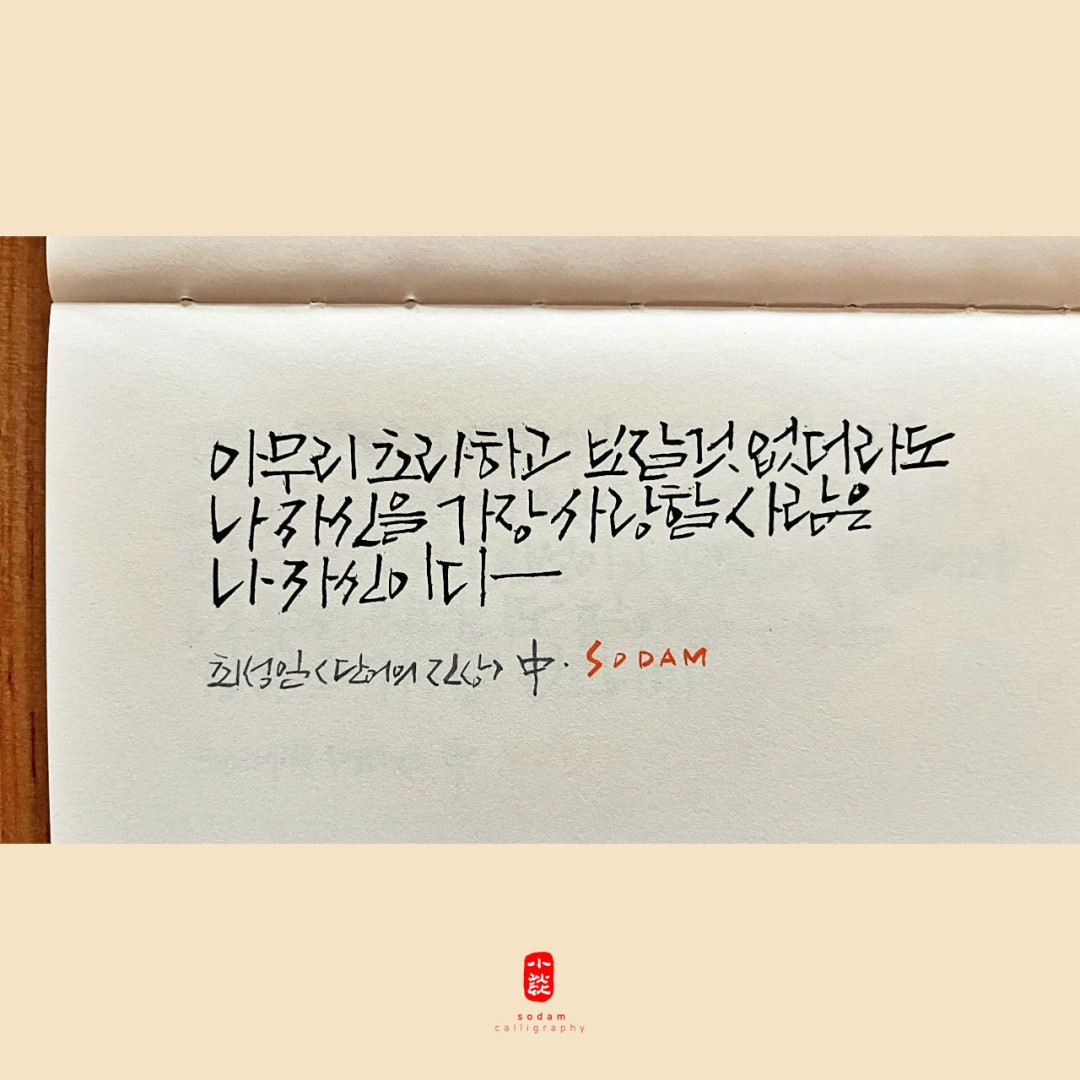 아무리 초라하고 보잘것 없더라도
나 자신을 가장 사랑할 사람은
나 자신이다
최석일 <단어의 진상> 中. SODAM
小談
sodam
calligraphy